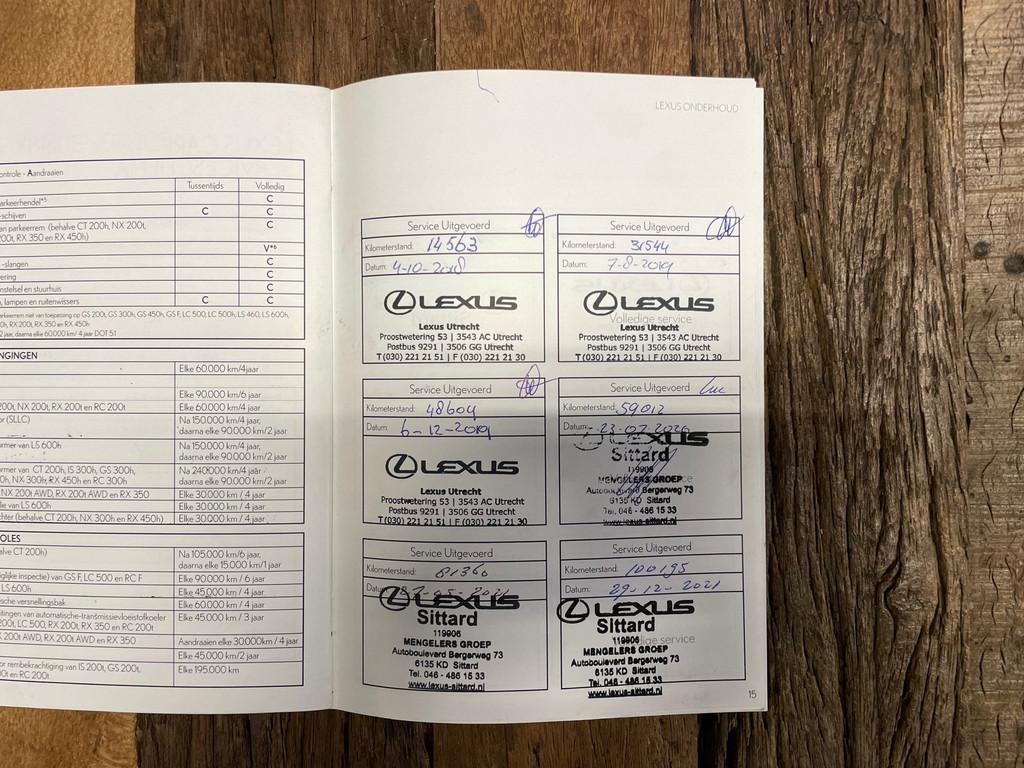 ontrole - Aandraaien
Tussentijds Volledig
arkeerhendel*5 C
-schijven C C
an parkeerrem (behalve CT 200h, NX 200t, C
200t, RX 350 en RX 450h)
V*6
-slangen C
ering C
nstelsel en stuurhuis C
, lampen en ruitenwissers C C
arkeerrem niet van toepassing op GS 200t, GS 300h, GS 450h, GS F, LC 500, LC 500h, LS 460, LS 600h,
0h, RX 200t, RX 350 en RX 450h
2 jaar, daarna elke 60.000 km/ 4 jaar DOT 5.1
NGINGEN
Elke 60.000 km/4jaar
Elke 90.000 km/6 jaar
200t, NX 200t, RX 200t en RC 200t Elke 60.000 km/4 jaar
or (SLLC) Na 150.000 km/4 jaar,
daarna elke 90.000 km/2 jaar
ormer van LS 600h Na 150.000 km/4 jaar,
daarna elke 90.000 km/2 jaar
ormer van CT 200h, IS 300h, GS 300h, Na 240.000 km/4 jaar
0h, NX 300h, RX 450h en RC 300h daarna elke 90.000 km/2 jaar
NX 200t AWD, RX 200t AWD en RX 350 Elke 30.000 km / 4 jaar
ie van LS 600h Elke 30.000 km / 4 jaar
chter (behalve CT 200h, NX 300h en RX 450h) Elke 30.000 km / 4 jaar
OLES
alve CT 200h) Na 105.000 km/6 jaar,
daarna elke 15.000 km/1 jaar
glijke inspectie) van GS F, LC 500 en RC F Elke 90.000 km / 6 jaar
LS 600h Elke 45.000 km / 4 jaar
ische versnellingsbak Elke 60.000 km / 4 jaar
itingen van automatische-transmissievloeistofkoeler Elke 45.000 km / 3 jaar
200t, LC 500, RX 200t, RX 350 en RC 200t
X 200t AWD, RX 200t AWD en RX 350 Aandraaien elke 30.000km / 4 jaar
Elke 45.000 km/2 jaar
or rembekrachtiging van IS 200t, GS 200t, Elke 195.000 km
00t en RC 200t
LEXUS ONDERHOUD
Service Uitgevoerd
Kilometerstand: 14563
Datum: 4-10-2018
LEXUS
Lexus Utrecht
Proostwetering 53 | 3543 AC Utrecht
Postbus 9291 | 3506 GG Utrecht
T (030) 221 21 51 | F (030) 221 21 30
Service Uitgevoerd
Kilometerstand: 31544
Datum: 7-8-2019
LEXUS
Volledige service
Lexus Utrecht
Proostwetering 53 | 3543 AC Utrecht
Postbus 9291 | 3506 GG Utrecht
T (030) 221 21 51 | F (030) 221 21 30
Service Uitgevoerd
Kilometerstand: 48604
Datum: 6-12-2019
LEXUS
Lexus Utrecht
Proostwetering 53 | 3543 AC Utrecht
Postbus 9291 | 3506 GG Utrecht
T (030) 221 21 51 | F (030) 221 21 30
Service Uitgevoerd
Kilometerstand: 59012
Datum: 23-07-2020
LEXUS
Sittard
119906
MENGELERS GROEP
Autoboulevard Bergerweg 73
6135 KD Sittard
Tel. 046 - 486 15 33
www.lexus-sittard.nl
Service Uitgevoerd
Kilometerstand: 81360
LEXUS
Sittard
119906
MENGELERS GROEP
Autoboulevard Bergerweg 73
6135 KD Sittard
Tel. 046 - 486 15 33
www.lexus-sittard.nl
Service Uitgevoerd
Kilometerstand: 100195
Datum: 29-12-2021
LEXUS
Sittard
119906
MENGELERS GROEP
Autoboulevard Bergerweg 73
6135 KD Sittard
Tel. 046 - 486 15 33
www.lexus-sittard.nl
15